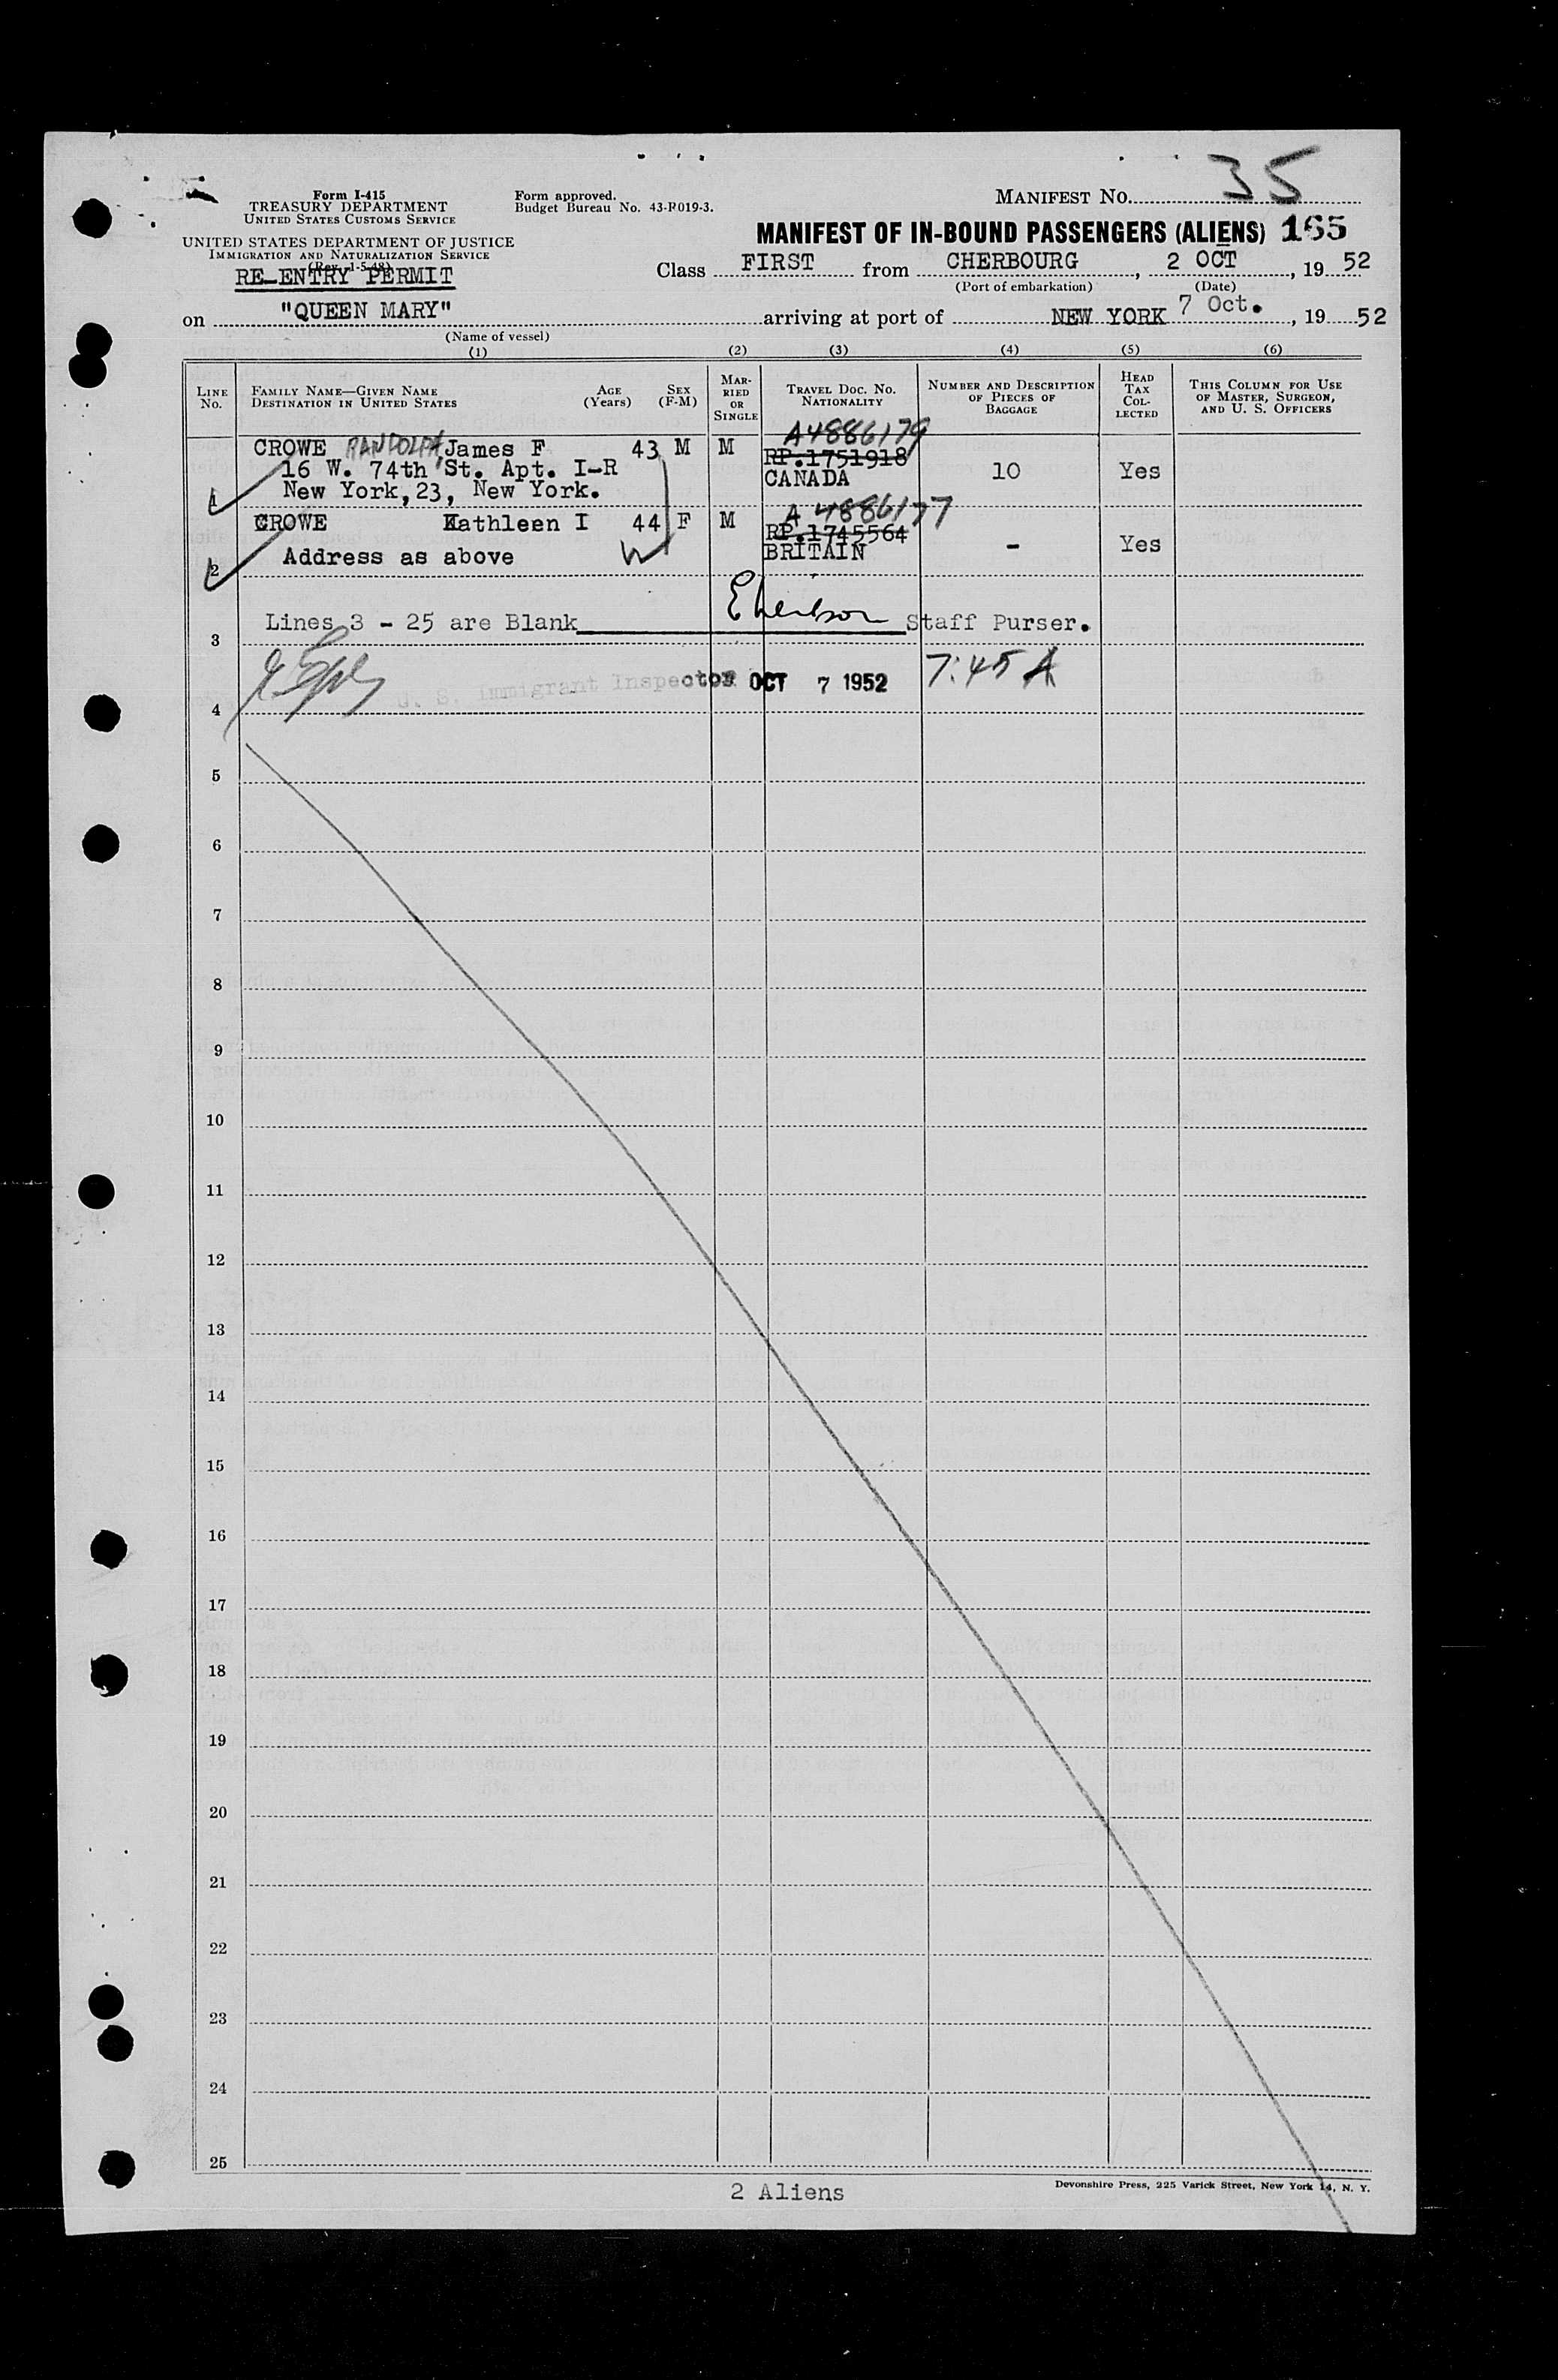 Form I-415
TREASURY DEPARTMENT
UNITED STATES CUSTOMS SERVICE
UNITED STATES DEPARTMENT OF JUSTICE
IMMIGRATION AND NATURALIZATION SERVICE
(Rev. 1-5-48)
RE-ENTRY PERMIT
Form approved.
Budget Bureau No. 43-R019-3.
MANIFEST No. 35
MANIFEST OF IN-BOUND PASSENGERS (ALIENS) 165
Class FIRST from CHERBOURG, 2 OCT, 19 52
(Port of embarkation) (Date)
on "QUEEN MARY" arriving at port of NEW YORK 7 Oct., 19 52
(Name of vessel)
(1) (2) (3) (4) (5) (6)
LINE No. FAMILY NAME—GIVEN NAME DESTINATION IN UNITED STATES AGE (Years) SEX (F-M) MARRIED OR SINGLE TRAVEL DOC. No. NATIONALITY NUMBER AND DESCRIPTION OF PIECES OF BAGGAGE HEAD TAX COLLECTED THIS COLUMN FOR USE OF MASTER, SURGEON, AND U. S. OFFICERS
A4886179
CROWE RANDOLPH, James F 43 M M RP.1751918
16 W. 74th St. Apt. I-R CANADA 10 Yes
1 New York, 23, New York.
A 4886177
CROWE Kathleen I 44 F M RP.1745564
Address as above BRITAIN - Yes
2
Lines 3 - 25 are Blank Staff Purser.
3
U. S. Immigrant Inspector OCT 7 1952 7:45 A
4
5
6
7
8
9
10
11
12
13
14
15
16
17
18
19
20
21
22
23
24
25
2 Aliens
Devonshire Press, 225 Varick Street, New York 14, N. Y.